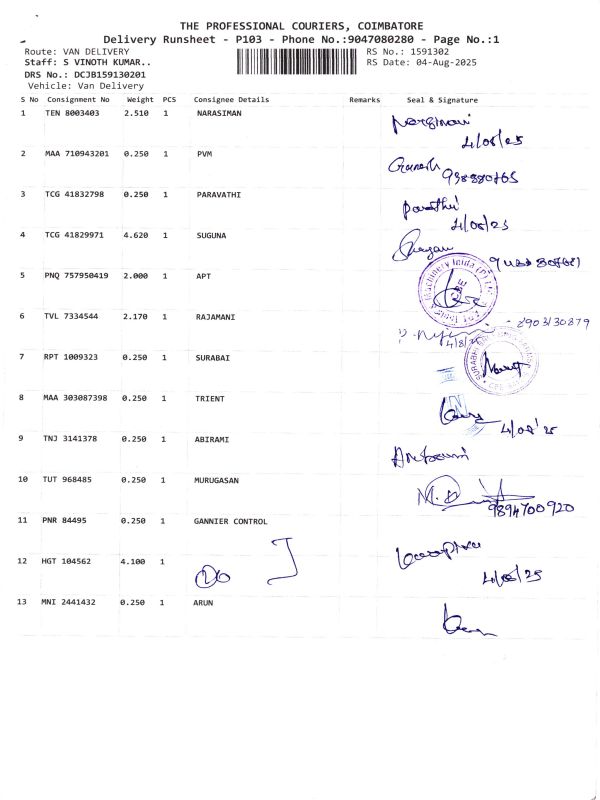 THE PROFESSIONAL COURIERS, COIMBATORE
Delivery Runsheet - P103 - Phone No.:9047080280 - Page No.:1
Route: VAN DELIVERY RS No.: 1591302
Staff: S VINOTH KUMAR.. RS Date: 04-Aug-2025
DRS No.: DCJB159130201
Vehicle: Van Delivery
S No Consignment No Weight PCS Consignee Details Remarks Seal & Signature
1 TEN 8003403 2.510 1 NARASIMAN
4/08/25
2 MAA 710943201 0.250 1 PVM
Ganesh
3 TCG 41832798 0.250 1 PARAVATHI
4/08/25
4 TCG 41829971 4.620 1 SUGUNA
5 PNQ 757950419 2.000 1 APT
6 TVL 7334544 2.170 1 RAJAMANI
4/8/25
7 RPT 1009323 0.250 1 SURABAI
8 MAA 303087398 0.250 1 TRIENT
4/08/25
9 TNJ 3141378 0.250 1 ABIRAMI
10 TUT 968485 0.250 1 MURUGASAN
9894700920
11 PNR 84495 0.250 1 GANNIER CONTROL
12 HGT 104562 4.100 1
4/08/25
13 MNI 2441432 0.250 1 ARUN